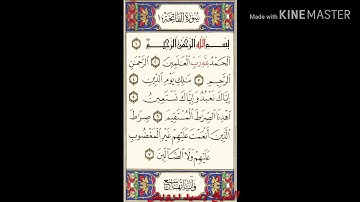 Made with KINEMASTER
سُورَةُ الفَاتِحَةِ ١
بِسْمِ اللَّهِ الرَّحْمَٰنِ الرَّحِيمِ ١
الْحَمْدُ لِلَّهِ رَبِّ الْعَالَمِينَ ٢ الرَّحْمَٰنِ
الرَّحِيمِ ٣ مَالِكِ يَوْمِ الدِّينِ ٤
إِيَّاكَ نَعْبُدُ وَإِيَّاكَ نَسْتَعِينُ ٥
اهْدِنَا الصِّرَاطَ الْمُسْتَقِيمَ ٦ صِرَاطَ
الَّذِينَ أَنْعَمْتَ عَلَيْهِمْ غَيْرِ الْمَغْضُوبِ
عَلَيْهِمْ وَلَا الضَّالِّينَ ٧